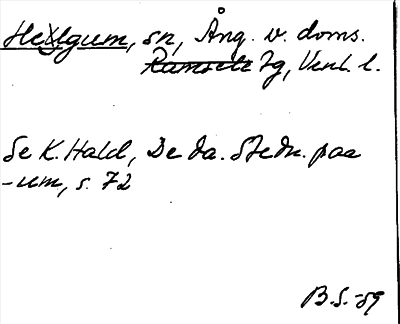 Helgum, sn, Ång. v. doms.
Ramsele tg, Venl. l.
Se K. Hald, De da. Stedn. paa
-um, s. 72
B.S. -59